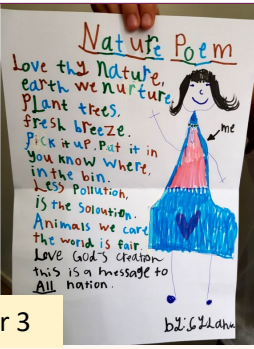 Nature Poem
Love thy nature,
earth we nurture
Plant trees,
fresh breeze.
Pick it up, Put it in
you know where,
in the bin.
Less Pollution,
is the Soloution.
Animals we care
the world is fair.
Love God's creation
this is a message to
All nation.
me
r 3